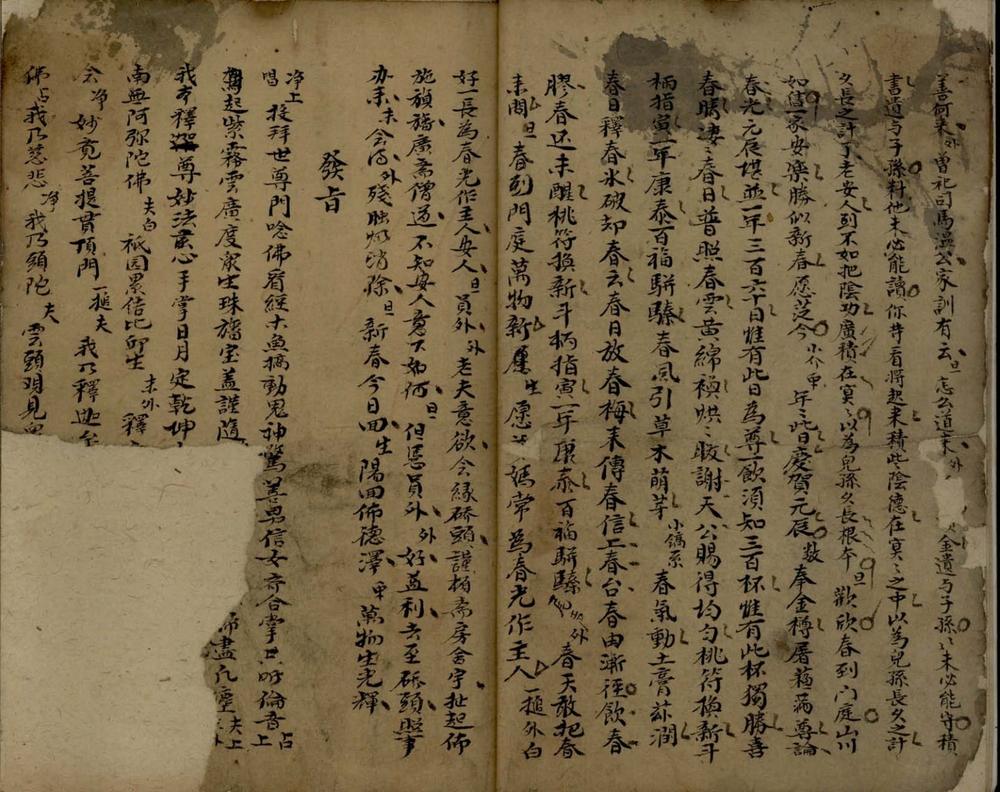 善何来外曾祀司馬温公家訓有云旦怎么道末外 金遺与子孫〻未必能守積
書遺与子孫料他未必能讀你井看將起来積些陰德在冥〻之中以為兒孫長久之計
久長之計丁老安人到不如把陰功廣積在冥〻以為兒孫久長根本旦歡欣春到门庭山川
如信一家安樂勝似新春愿从今小介甲年〻此日慶賀元辰数奉金樽屠蘓滿尊論
春光元辰堪並一年三百六十日惟有此日為尊一飲須知三百杯惟有此杯獨勝喜
春賜凄〻春日普照春雲黄綿襖烘〻暖謝天公賜得均匀桃符換新斗
柄指寅一年康泰百福駢臻春風引草木萌芽小鎬系春氣動土膏脉潤
春日釋春氷破却春云春日放春梅来傳春信工春台春由漸徑飲春
膠春还未醒桃符換新斗柄指寅一年康泰百福駢臻 外春天敢把春
来問旦春到門庭萬物新 生愿 媽常為春光作主人一搥外白
好一長為春光作主人安人旦員外外老夫意欲会緣硚頭謹相斋房舍宇扯起佈
施旗旛廣斋僧道不知安人意下如何旦但憑員外外好益利去至硚頭照事
办来末会得外殘臘 消除旦新春今日回生陽回佈德澤甲萬物生光輝
發旨
净上
唱 投拜世尊門唸佛看經木魚搞動鬼神驚善男信女齐合掌 明倫音占上
起紫霧雲廣度眾生珠旛宝盖謹隨 佛盡凡塵夫上
我本釋 尊妙法蓮心手掌日月定乾坤
南無阿弥陀佛夫白祇因累信比印生末外釋
介净妙竟菩提貫頂門一搥夫我乃釋迦
佛占我乃慈悲净我乃頭陀夫雲頭观見